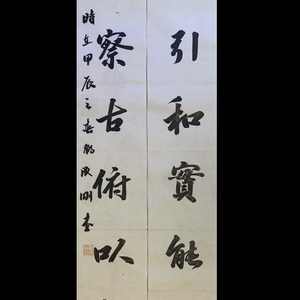 引和實能
察古俯以
時在甲辰之春